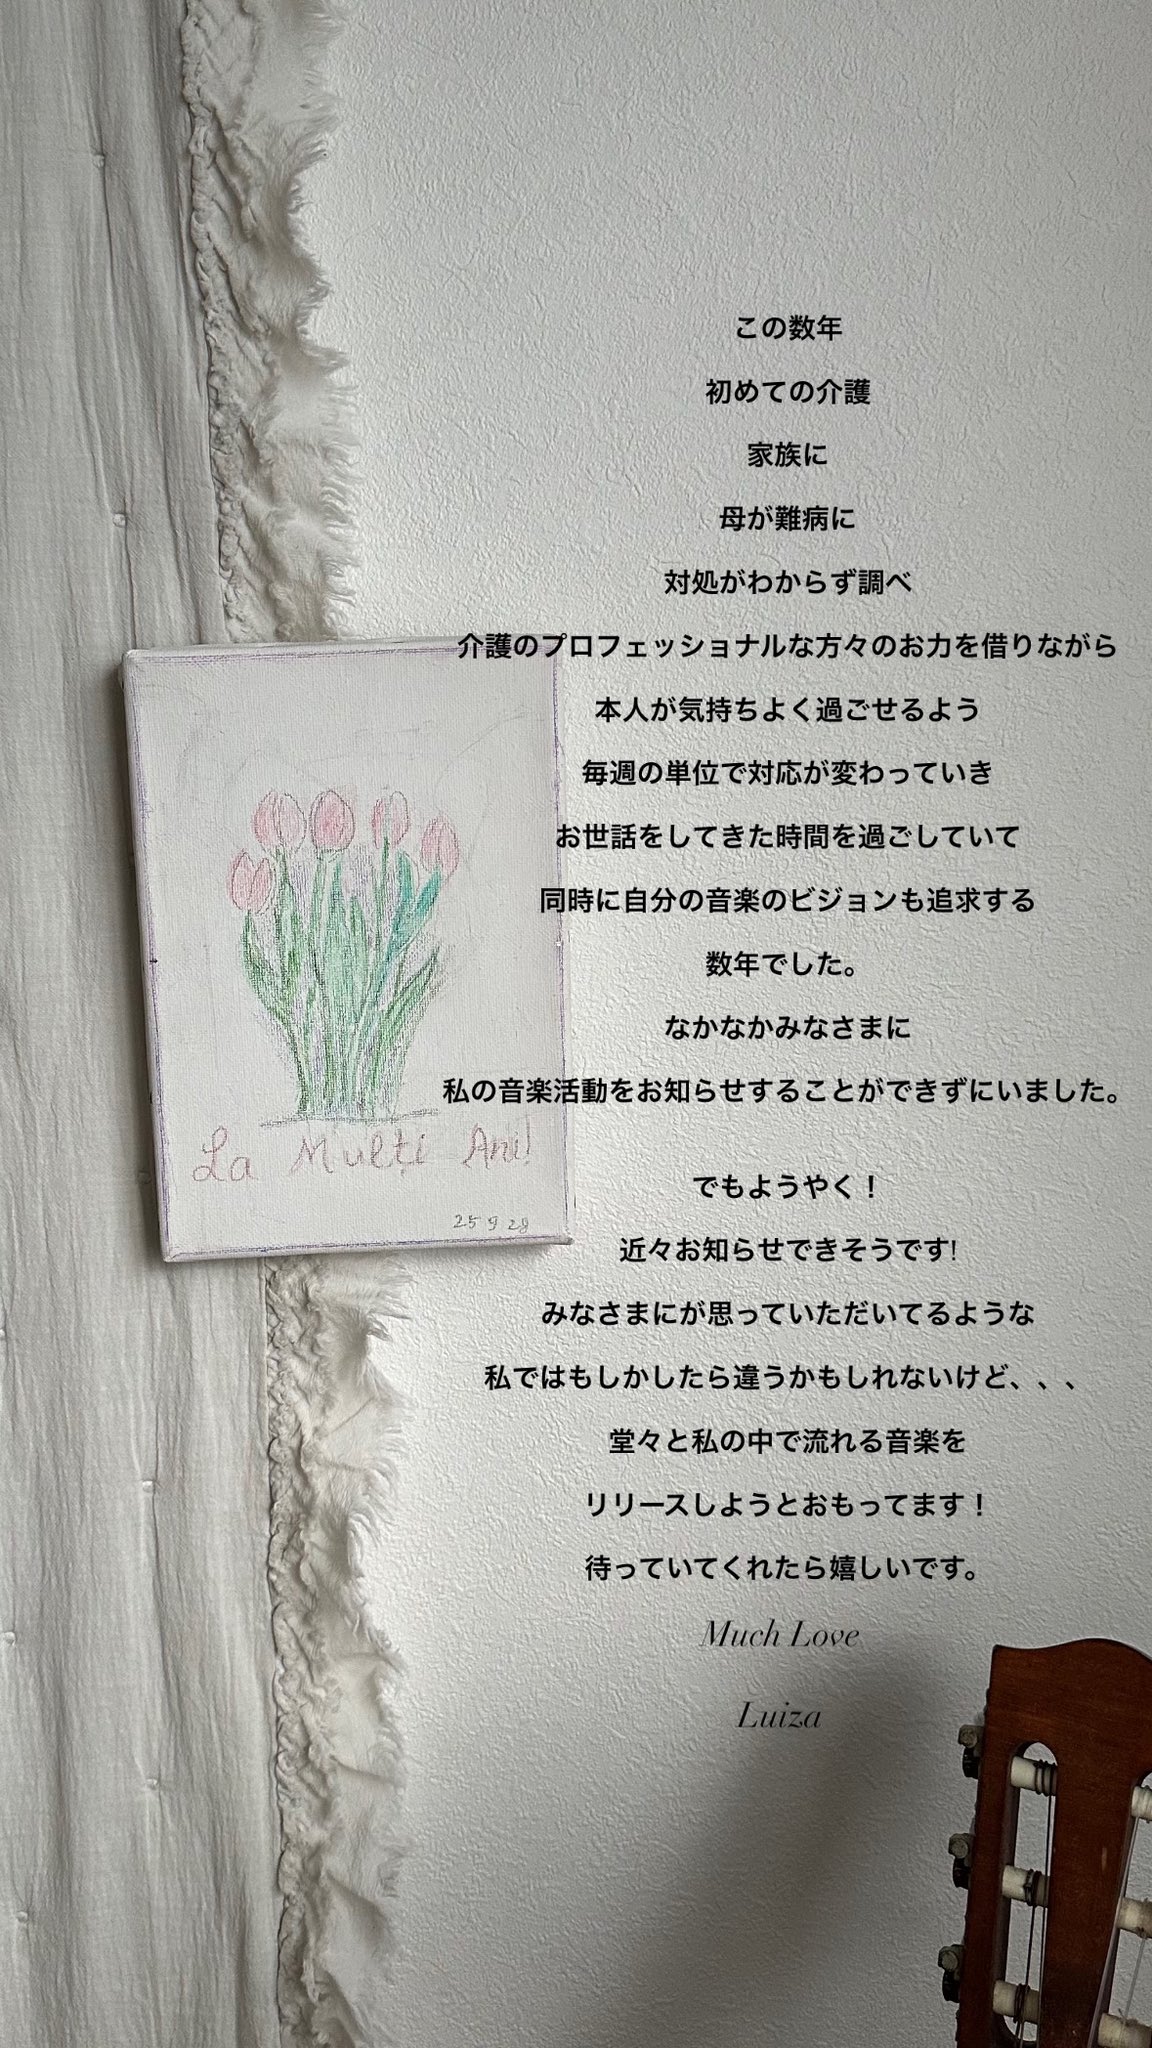 この数年
初めての介護
家族に
母が難病に
対処がわからず調べ
介護のプロフェッショナルな方々のお力を借りながら
本人が気持ちよく過ごせるよう
毎週の単位で対応が変わっていき
お世話をしてきた時間を過ごしていて
同時に自分の音楽のビジョンも追求する
数年でした。
なかなかみなさまに
私の音楽活動をお知らせすることができずにいました。
でもようやく！
近々お知らせできそうです!
みなさまにが思っていただいてるような
私ではもしかしたら違うかもしれないけど、、、
堂々と私の中で流れる音楽を
リリースしようとおもってます！
待っていてくれたら嬉しいです。
Much Love
Luiza
La Mulți Ani!
25 9 28